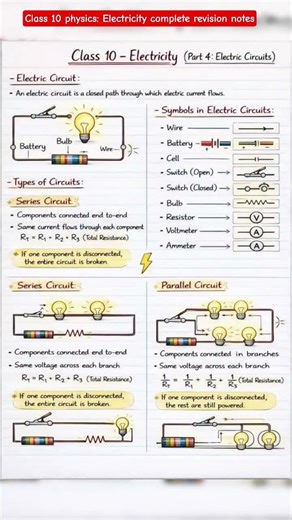 Class 10 physics: Electricity complete revision notes
Class 10 – Electricity (Part 4: Electric Circuits)
- Electric Circuit:
• An electric circuit is a closed path through which electric current flows.
Battery
Bulb
Wire
- Symbols in Electric Circuits:
• Wire
• Battery
• Cell
• Switch (Open)
• Switch (Closed)
• Bulb
• Resistor V
• Voltmeter A
• Ammeter A
- Types of Circuits:
Series Circuit
• Components connected end-to-end
• Same current flows through each component
RT = R1 + R2 + R3 (Total Resistance)
• If one component is disconnected,
the entire circuit is broken.
Series Circuit
• Components connected end-to-end
• Same voltage across each branch
RT = R1 + R2 + R3 (Total Resistance)
• If one component is disconnected,
the entire circuit is broken.
Parallel Circuit
• Components connected in branches
• Same voltage across each branch
1/RT = 1/R1 + 1/R2 + 1/R3 (Total Resistance)
• If one component is disconnected,
the rest are still powered.